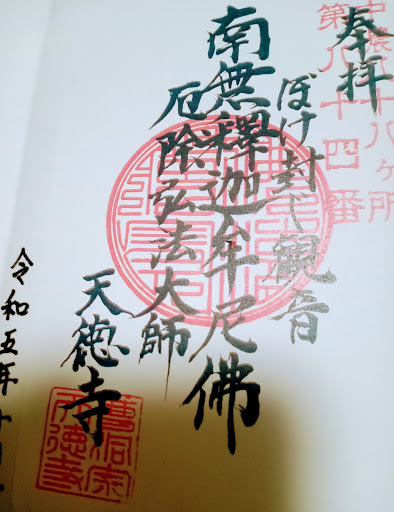 奉拝
中濃八十八ヶ所
第八十四番
ぼけ封じ観音
南無釋迦牟尼佛
厄除弘法大師
天徳寺
令和五年十
曹洞宗
天徳寺